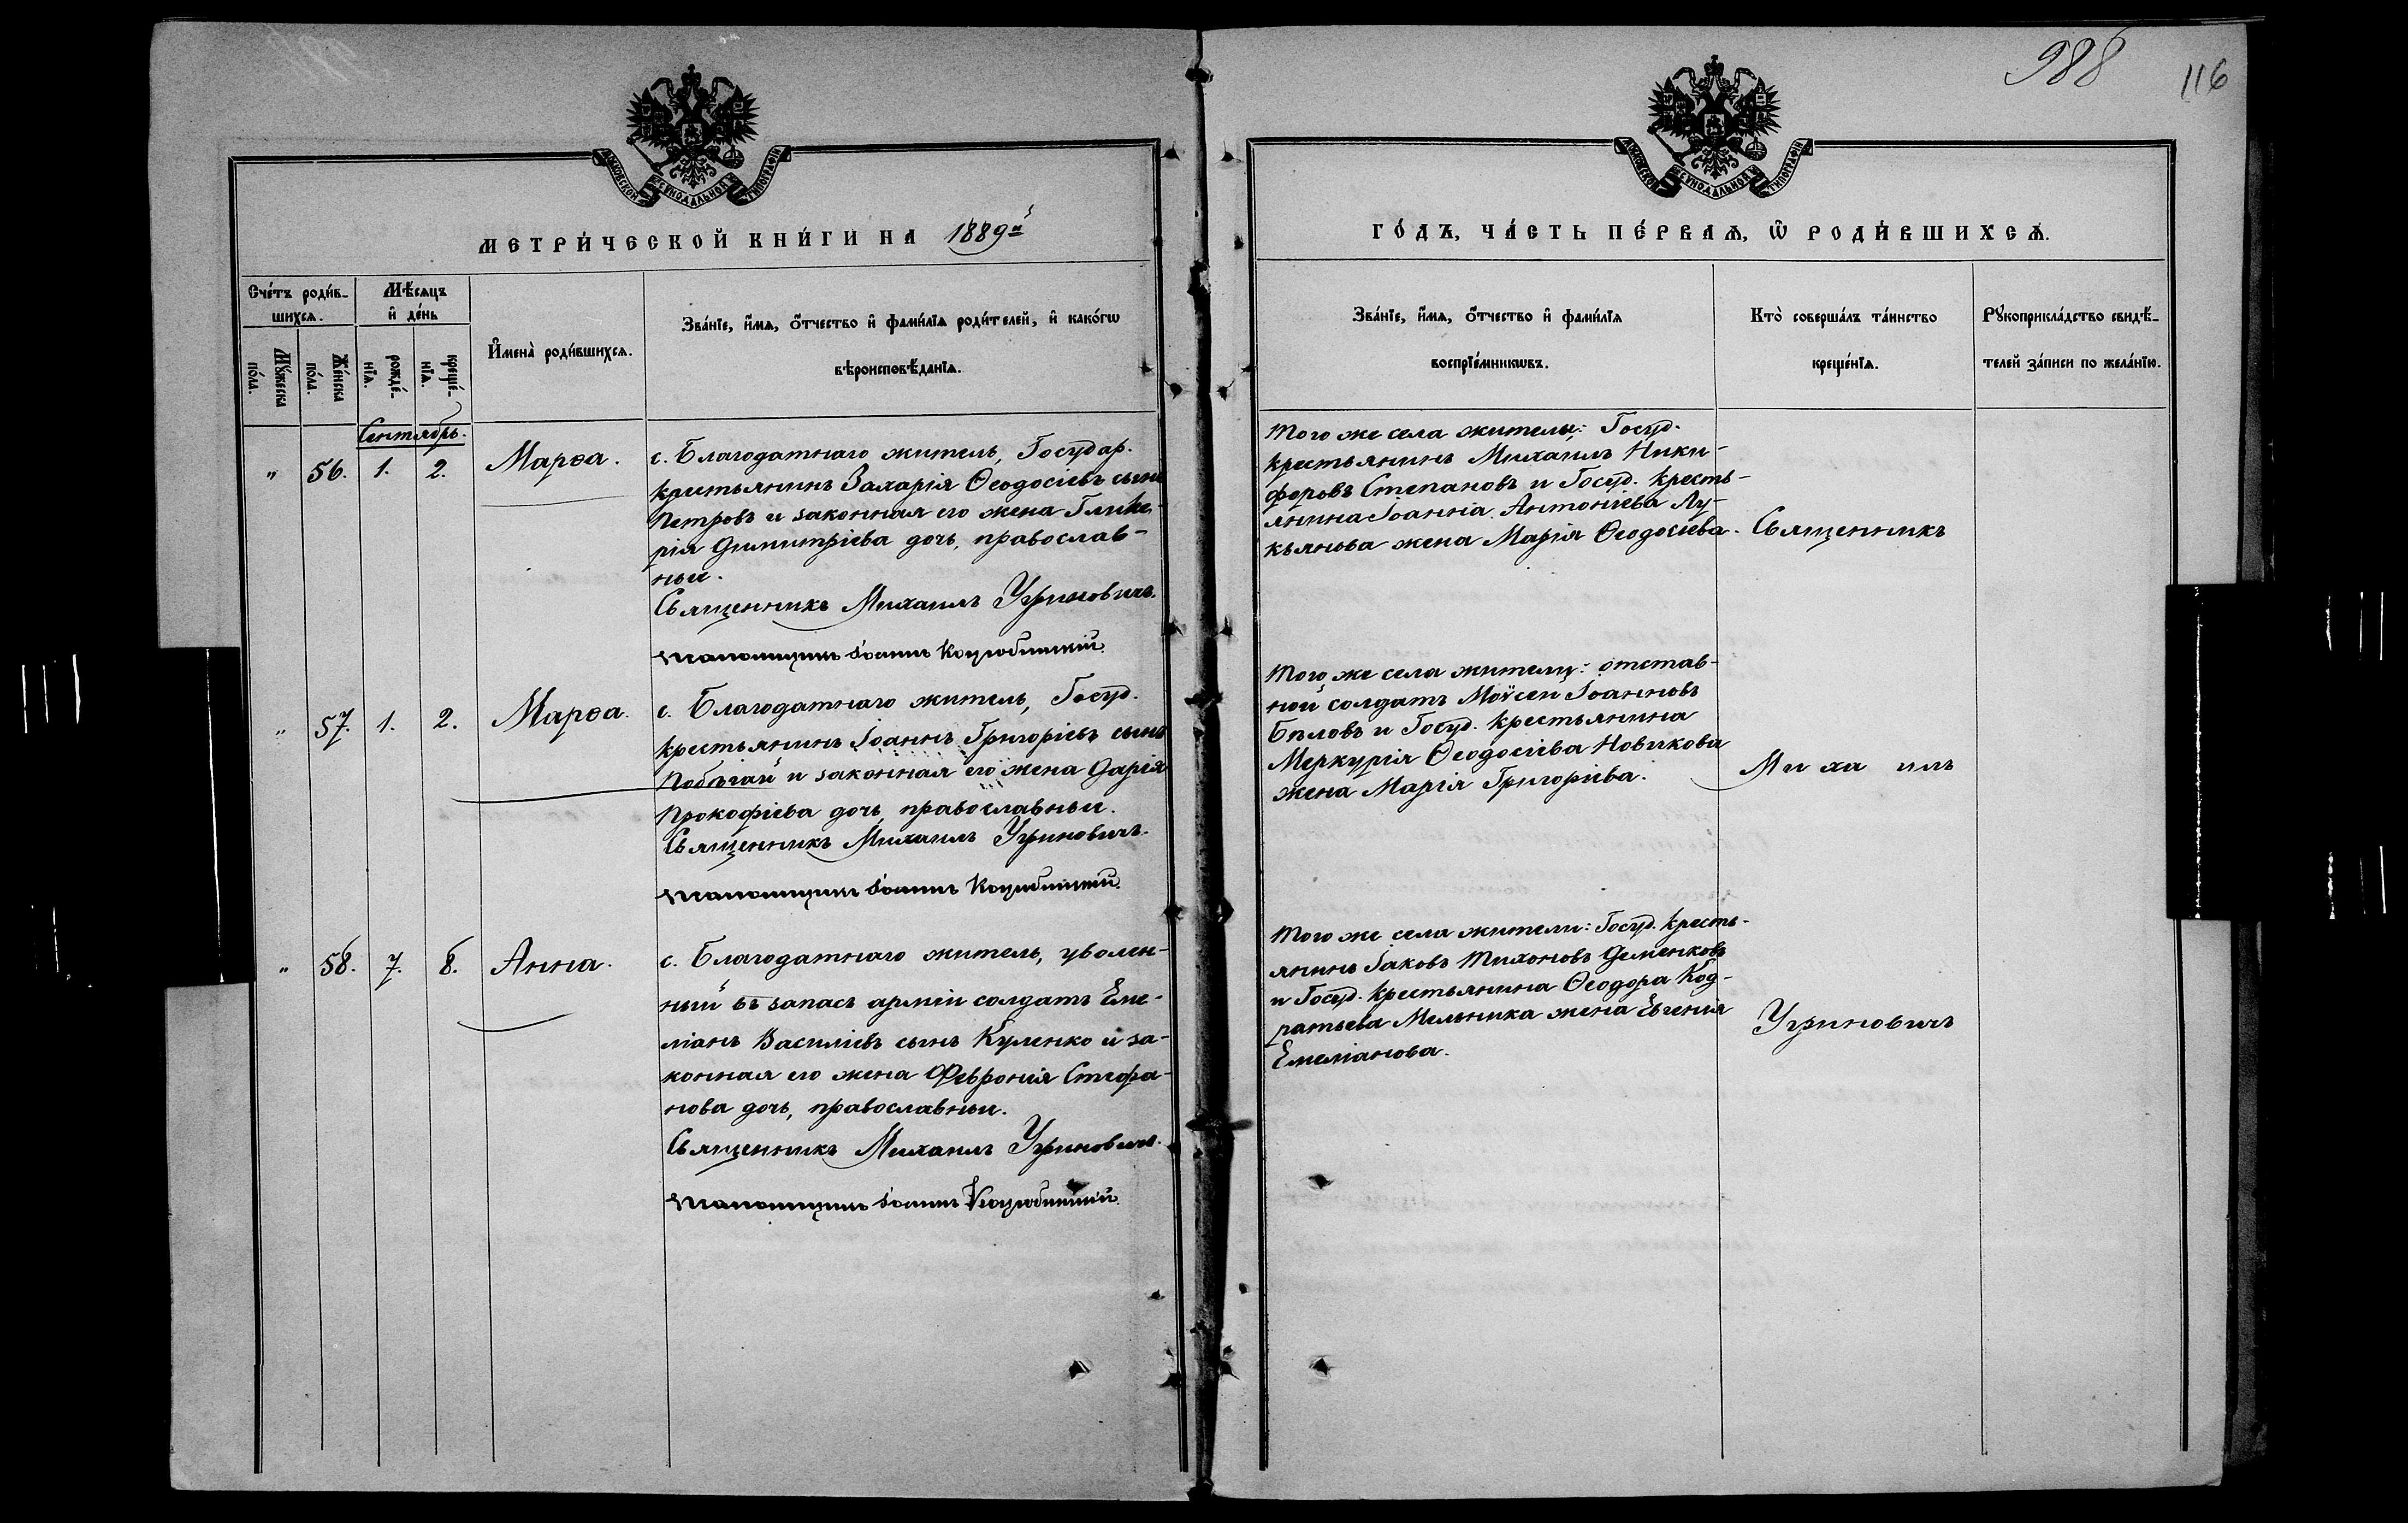 988
116
МОСКОВСКОЙ СѴНОДАЛЬНОЙ ТИПОГРАФІИ
МОСКОВСКОЙ СѴНОДАЛЬНОЙ ТИПОГРАФІИ
МЕТРИ́ЧЕСКОЙ КНИ́ГИ НА 1889й
ГО́ДЪ, ЧА́СТЬ ПЕ́РВАѦ, Ѡ҆ РОДИ́ВШИХСѦ.
Сче́тъ роди́в-
шихсѧ.
Мꙋ́жеска
по́ла.
Же́нска
по́ла.
Мѣ́сѧцъ
и҆ де́нь
рожде́-
нїѧ.
креще́-
нїѧ.
И҆мена̀ роди́вшихсѧ.
Зва́нїе, и҆́мѧ, ѻ҆́тчество и҆ фами́лїѧ роди́телей, и҆ како́гѡ
вѣроисповѣ́данїѧ.
Зва́нїе, и҆́мѧ, ѻ҆́тчество и҆ фами́лїѧ
воспрїе́мникѡвъ.
Кто̀ соверша́лъ та́инство
креще́нїѧ.
Рꙋкоприкла́дство свидѣ́-
телей за́писи по жела́нїю.
Сентябрь.
" 56. 1. 2. Марѳа.
с. Благодатнаго житель, Государ.
крестьянинъ Захарія Ѳеодосіевъ сынъ
Петровъ и законная его жена Глике-
рія Димитріева дочь, православ-
ныи.
Священникъ Михаилъ Угриновичъ.
Псаломщикъ Іоаннъ
Того же села жители: Госуд.
крестьянинъ Михаилъ Ники-
форовъ Степановъ и Госуд. кресть-
янина Іоаннія Антоніева Лу-
кьянова жена Марія Ѳеодосіева.
Священникъ
" 57. 1. 2. Марѳа.
с. Благодатнаго житель, Госуд.
крестьянинъ Іоаннъ Григоріевъ сынъ
Побѣгай и законная его жена Дарія
Прокофіева дочь, православныи.
Священникъ Михаилъ Угриновичъ.
Псаломщикъ Іоаннъ
Того же села жители: отстав-
ной солдатъ Моѵсей Іоанновъ
Бѣловъ и Госуд. крестьянина
Меркурія Ѳеодосіева Новикова
жена Марія Григоріева.
Михаилъ
" 58. 7. 8. Анна.
с. Благодатнаго житель, уволен-
ный въ запасъ арміи солдатъ Еме-
ліанъ Василіевъ сынъ Куленко и за-
конная его жена Февронія Стефа-
нова дочь, православныи.
Священникъ Михаилъ Угриновичъ.
Псаломщикъ Іоаннъ
Того же села жители: Госуд. кресть-
янинъ Іаковъ Тихоновъ Деменковъ
и Госуд. крестьянина Ѳеодора Код-
ратьева Мельника жена Евгенія
Емеліанова.
Угриновичъ